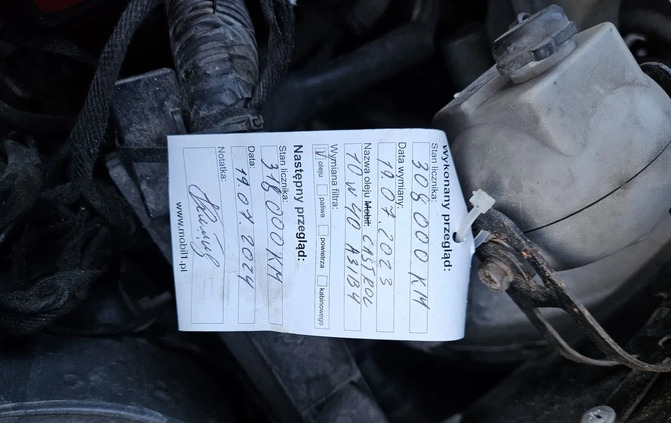 Wykonany przegląd:
Stan licznika:
308000 KM
Data wymiany:
19.07.2023
Nazwa oleju Mobil: CASTROL
10W40 A3/B4
Wymiana filtra:
V oleju paliwa powietrza kabinowego
Następny przegląd:
Stan licznika:
318000KM
Data:
19.07.2024
Notatka:
www.mobil1.pl